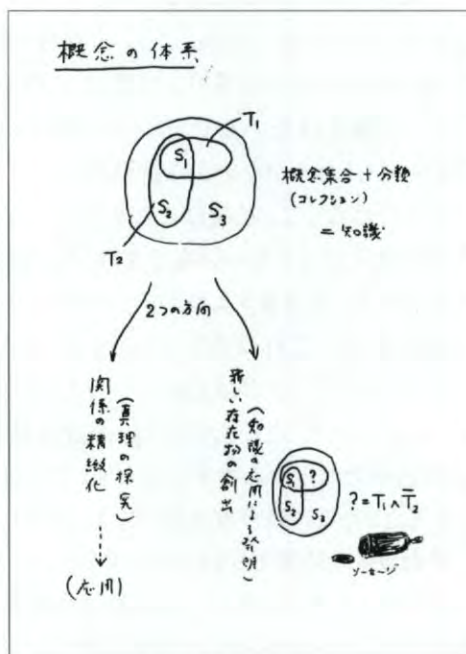 概念の体系
T₁
S₁
S₂
S₃
T₂
概念集合+分類
(コレクション)
=知識
2つの方向
関係の精緻化
(真理の探究)
(応用)
新しい存在物の創出
(知識の応用による発明)
S₁
?
S₂
S₃
?=T₁∧T̅₂
ソーセージ